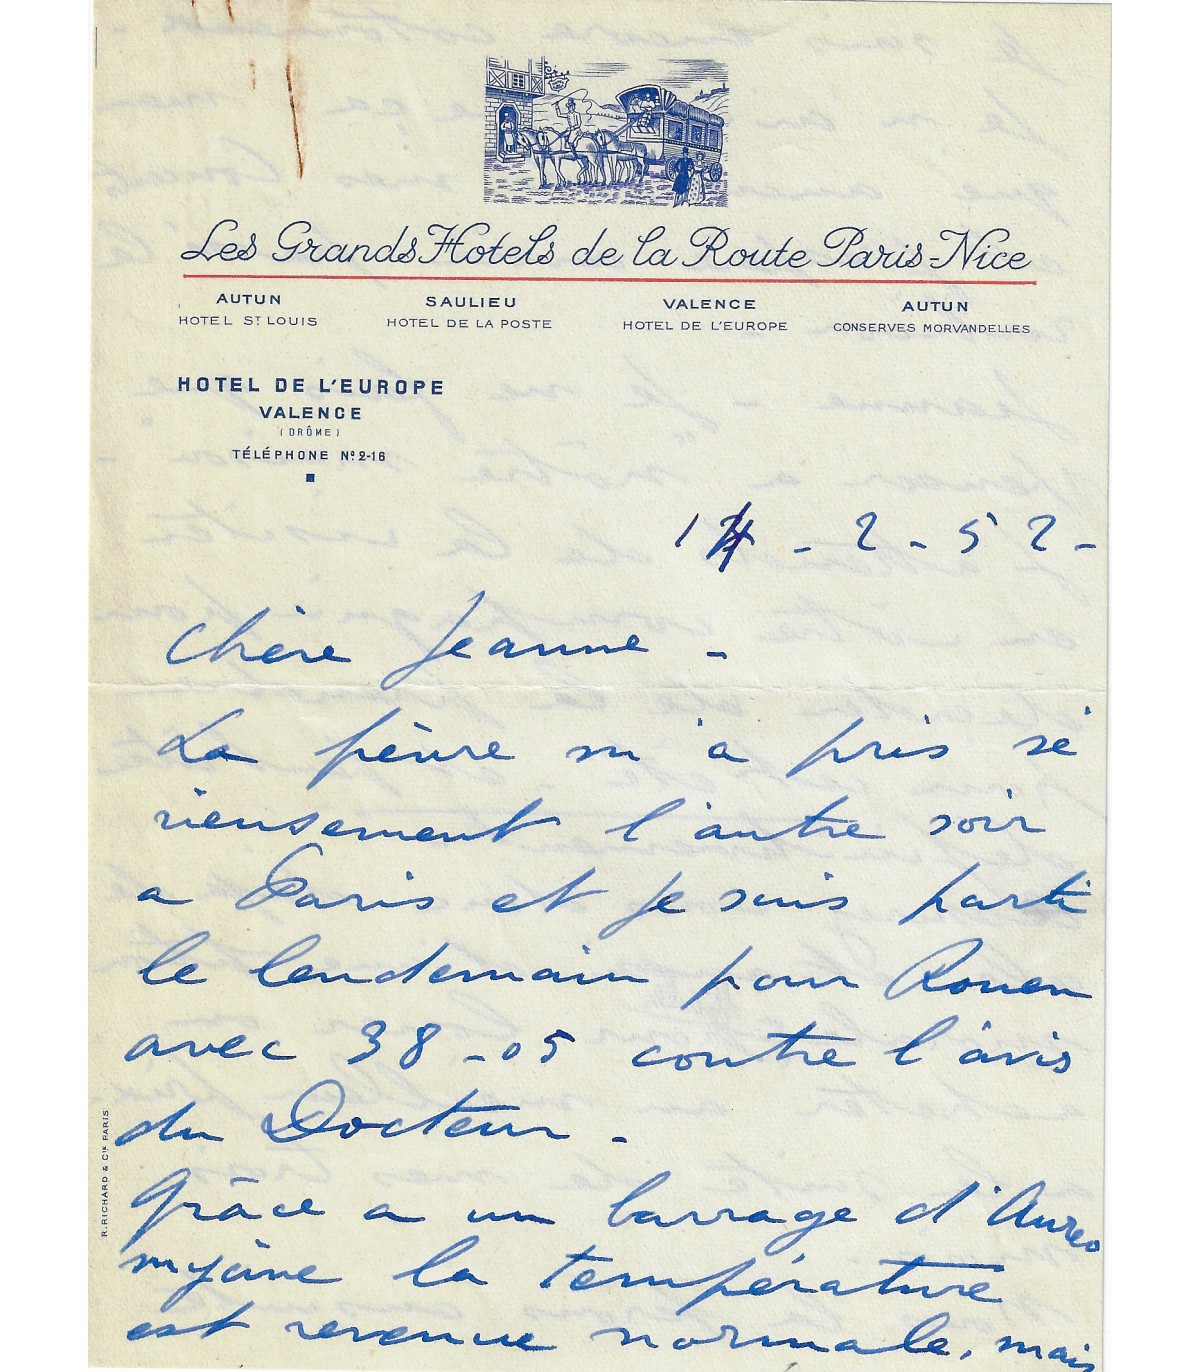 Les Grands Hotels de la Route Paris-Nice
AUTUN
HOTEL ST LOUIS
SAULIEU
HOTEL DE LA POSTE
VALENCE
HOTEL DE L'EUROPE
AUTUN
CONSERVES MORVANDELLES
HOTEL DE L'EUROPE
VALENCE
(DRÔME)
TÉLÉPHONE No 2-16
- 2 - 52 -
Chère Jeanne -
La fièvre m'a pris sé
rieusement l'autre soir
a Paris et je suis parti
le lendemain pour Rouen
avec 38-05 contre l'avis
du Docteur -
Grâce a un barrage d'Aureo
mycine la température
est revenue normale, mais
R. RICHARD & Cie PARIS